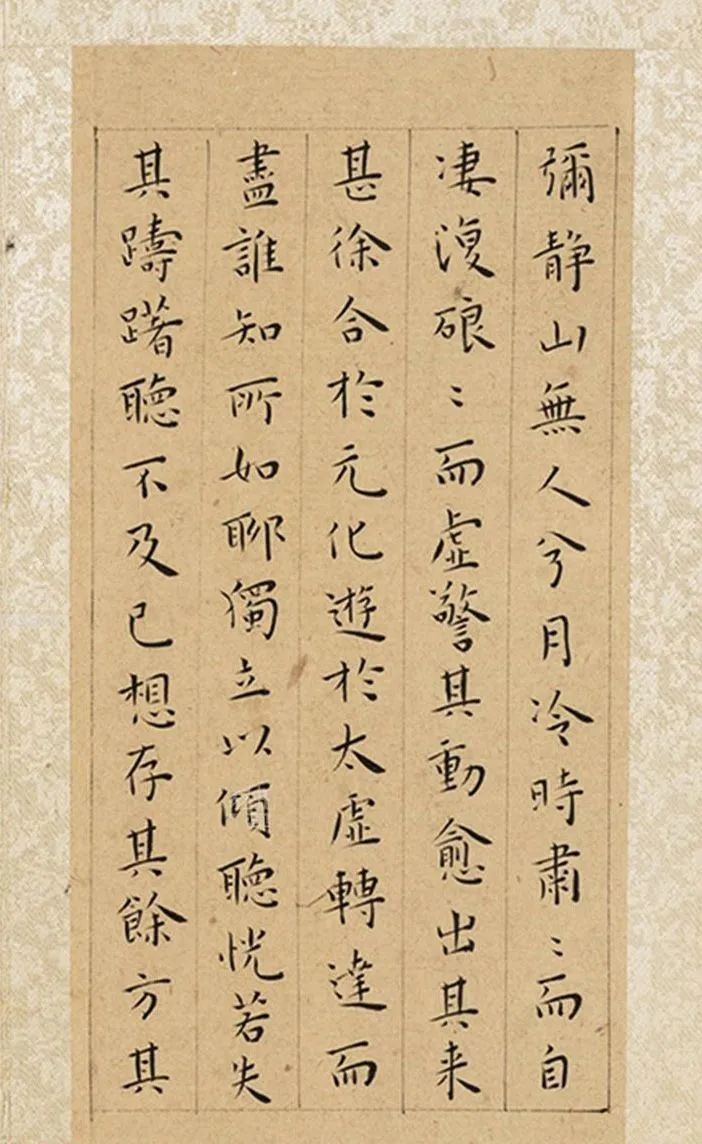 彌静山無人兮月冷時肅〻而自
凄澓硠〻而虛警其動愈出其来
甚徐合於元化遊於太虛轉達而
盡誰知所如聊獨立以傾聽恍若失
其躊躇聽不及已想存其餘方其